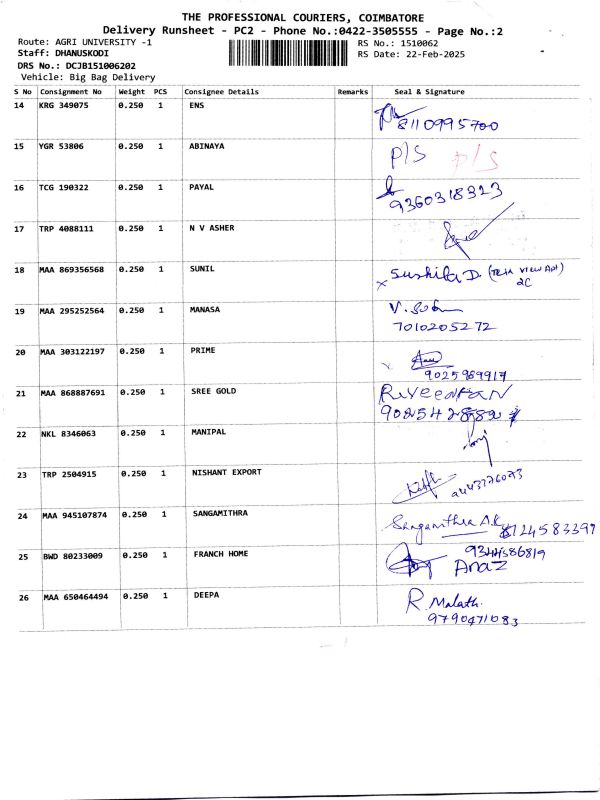 THE PROFESSIONAL COURIERS, COIMBATORE
Delivery Runsheet - PC2 - Phone No.:0422-3505555 - Page No.:2
Route: AGRI UNIVERSITY -1 RS No.: 1510062
Staff: DHANUSKODI RS Date: 22-Feb-2025
DRS No.: DCJB151006202
Vehicle: Big Bag Delivery
S No Consignment No Weight PCS Consignee Details Remarks Seal & Signature
14 KRG 349075 0.250 1 ENS
8110995700
15 YGR 53806 0.250 1 ABINAYA
P/S P/S
16 TCG 190322 0.250 1 PAYAL
9360318323
17 TRP 4088111 0.250 1 N V ASHER
18 MAA 869356568 0.250 1 SUNIL
Sushila D. View Apt)
2C
19 MAA 295252564 0.250 1 MANASA
7010205272
20 MAA 303122197 0.250 1 PRIME
9025969917
21 MAA 868887691 0.250 1 SREE GOLD
22 NKL 8346063 0.250 1 MANIPAL
23 TRP 2504915 0.250 1 NISHANT EXPORT
24 MAA 945107874 0.250 1 SANGAMITHRA
Sangamithra A.K 8124583399
25 BWD 80233009 0.250 1 FRANCH HOME
9344586819
Anaz
26 MAA 650464494 0.250 1 DEEPA
R. Malathi
9790471083